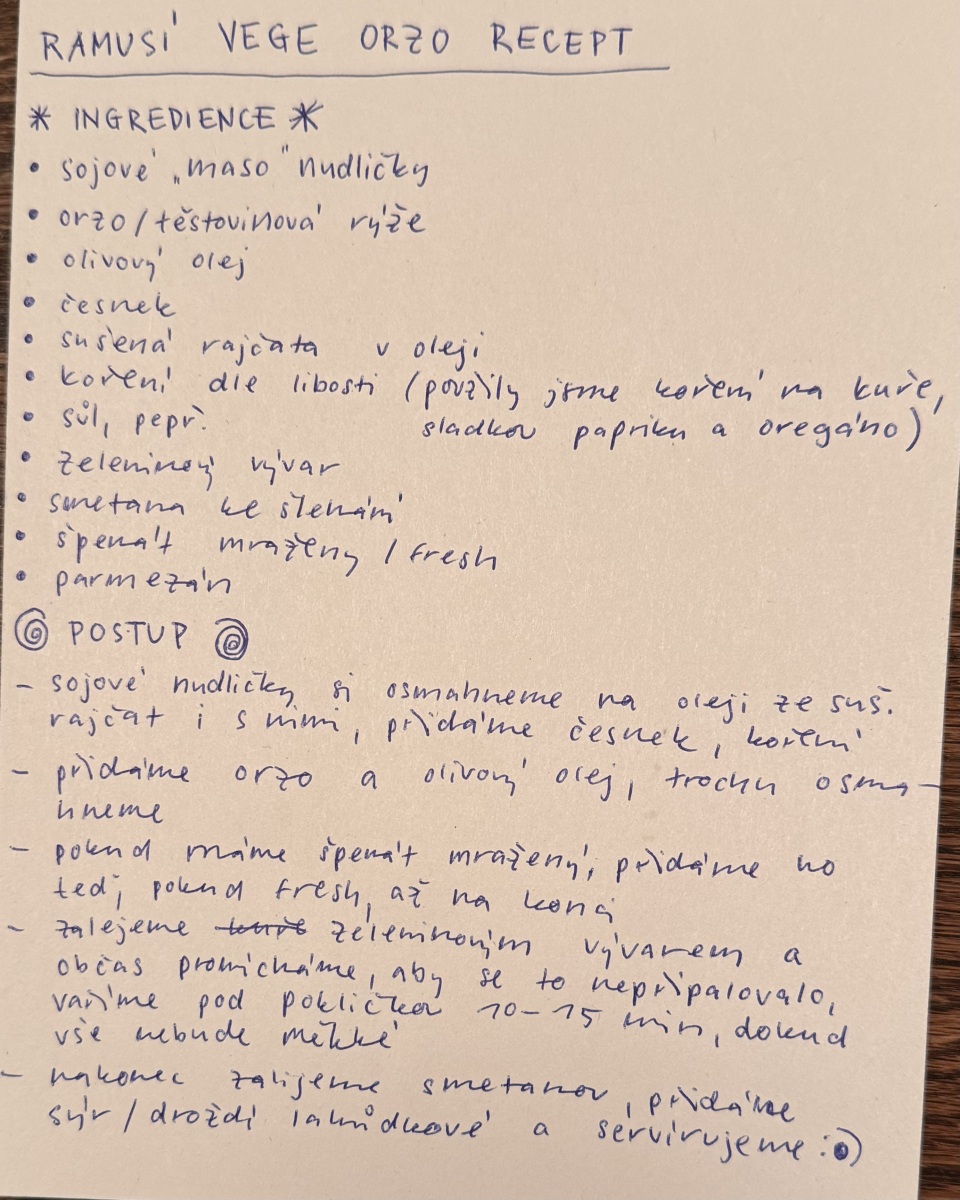 RAMUSÍ VEGE ORZO RECEPT
* INGREDIENCE *
• sojové „maso" nudličky
• orzo/těstovinová rýže
• olivový olej
• česnek
• sušená rajčata v oleji
• koření dle libosti (použily jsme koření na kuře,
sladkou papriku a oregáno)
• sůl, pepř.
• zeleninový vývar
• smetana ke šlehání
• špenát mražený / fresh
• parmezán
POSTUP
- sojové nudličky si osmahneme na oleji ze suš.
rajčat i s nimi, přidáme česnek, koření
- přidáme orzo a olivový olej, trochu osma-
hneme
- pokud máme špenát mražený, přidáme ho
teď, pokud fresh, až na konci
- zalejeme zeleninovým vývarem a
občas promícháme, aby se to nepřipalovalo,
vaříme pod pokličkou 10-15 min, dokud
vše nebude měkké
- nakonec zalijeme smetanou, přidáme
sýr/droždí lahůdkové a servírujeme :o)